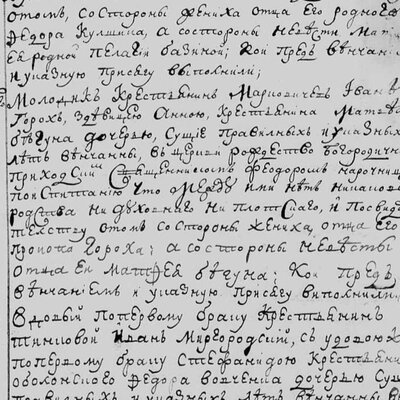 отомъ, состороны жениха отца его родного
Ѳедора Кулшина, а состороны невѣсти Мат
ея родной Пелагіи базиной; кои предъ вѣнчан
и указную присягу выполнили;
Молодикъ крестьянинъ Марковичевъ Іван
Горохъ, здѣвицею Анною, крестьянина Матвѣ
бѣгуна дочерью, сущіе правильныхъ и указныхъ
лѣтъ вѣнчанны, въ церкви рождество богородичн
приходскій священникомъ Феодоромъ
поиспитанію что между ими нѣтъ никаков
родства ни духовного ни плотскаго, и посвид
телству отомъ состороны жениха, отца его
Прокопа Гороха; а состороны невѣсты
отца ея Матфея бѣгуна; кои предъ
вѣнчаніемъ и указную присягу виполнили
Вдовый попервому браку крестьянинъ
Іванъ Миргородскій, съ удовою
попервому браку Стефанидою крестьян
оболонского Федора вовченка дочерью су
правилныхъ и указныхъ лѣтъ вѣнчанны в